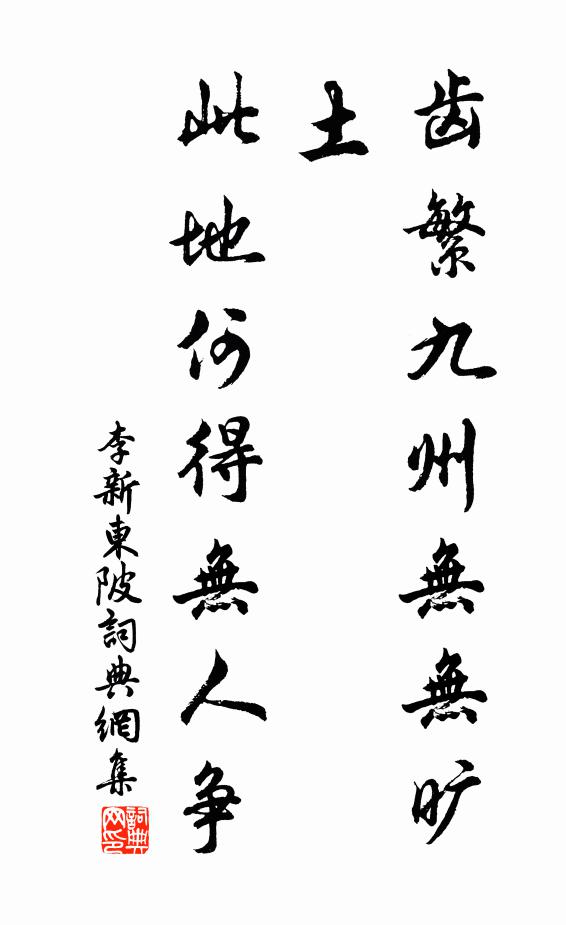 齿繁九州無無旷
土
此地何得無人争
李新東陂詞典網集
詞典网印